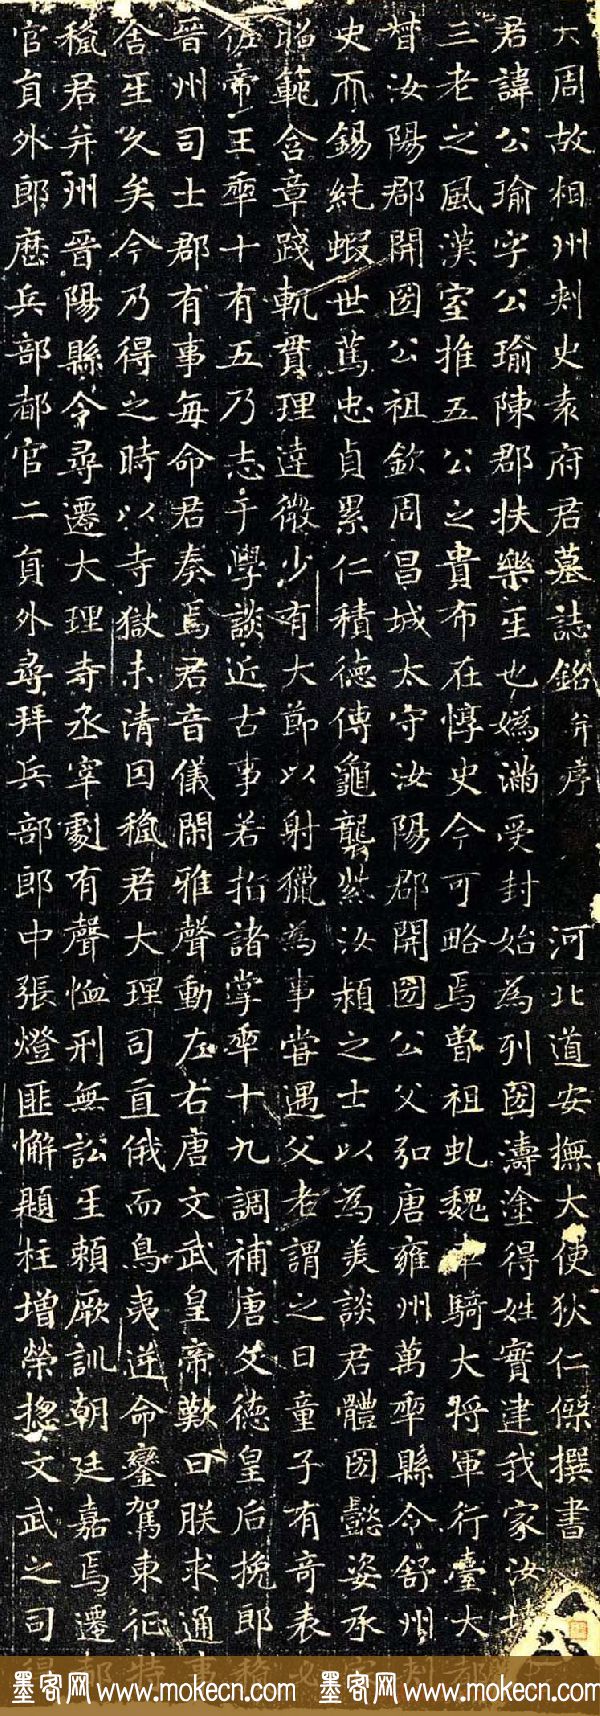 大周故相州刾史袁府君墓誌銘并序 河北道安撫大使狄仁傑撰書
君諱公瑜字公瑜陳郡扶樂人也嬀滿受封始為列國濤塗得姓實建我家汝
三老之風漢室推五公之貴布在惇史今可略焉曾祖虬魏車騎大將軍行臺大
督汝陽郡開國公祖欽周昌城太守汝陽郡開國公父弘唐雍州萬年縣令舒州刾
史而錫純嘏世篤忠貞累仁積德傳龜襲紫汝潁之士以為美談君體國懿姿承
昭範含章踐軌貫理達微少有大節以射獵為事嘗遇父老謂之曰童子有奇表
佐帝王年十有五乃志于學談近古事若指諸掌年十九調補唐文德皇后挽郎
晉州司士郡有事每命君奏焉君音儀閑雅聲動左右唐文武皇帝歎曰朕求通事
舍人久矣今乃得之時以寺獄未清因授君大理司直俄而鳥夷逆命鑾駕東征特
授君并州晉陽縣令尋遷大理寺丞宰劇有聲恤刑無訟人賴厥訓朝廷嘉焉遷都
官員外郎歷兵部都官二員外尋拜兵部郎中張燈匪懈題柱增榮揔文武之司
墨客网 www.mokecn.com 墨客网 www.mokecn.com